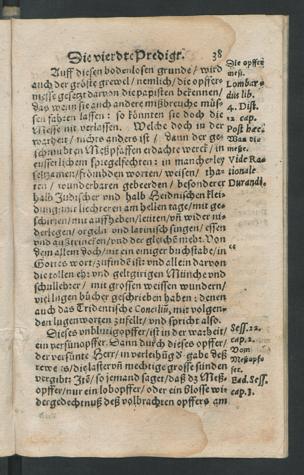 Die vierdte Predigt. 38
Auff diesen bodenlosen grunde / wird
auch der gröste grewel / nemlich / die opffer-
messe gesetzt darvon die papisten bekennen /
das wann sie auch andere mißbreuche müs-
sen fahren lassen : so könnten sie doch die
Messe nit verlassen. Welche doch in der
warheit / nichts anders ist / dann der ge-
schmirbten Meßpfaffen erdachte werck / in
eusserlichem spiegelfechten : in mancherley
seltzamen / frömbden worten / weisen / tha-
ten / wunderbaren geberden / besonderer
halb Jüdischer und halb Heidnischen klei-
dung : mit liechtern am hellen tage / mit ge-
schirren / mit auffheben / leuten / uñ wider ni-
derlegen / orgeln und latinisch singen / essen
und außtrincken / und der gleichẽ mehr. Von
dem allem doch / nit ein einiger buchstabe / in
Gottes wort / zufinde ist : und allein darvon
die tollen ehr und geltgirigen Münche und
schullehrer / mit grossen weissen wundern /
viel lugen bücher geschrieben haben : denen
auch das Tridentische Conciliũ, mit volgen-
den lugen worten zufellt / und spricht also.
Dieses unblutig opffer / ist in der warheit /
ein versünopffer. Dann durch dieses opffer /
der versünte Herr / in verleihũg d gabe deß
rewens / die laster uñ mechtige grosse sünden
vergibt : Itẽ / so jemand saget / daß dz Meß-
opffer / nur ein lobopffer / oder ein blosse wi-
dergedechtnuß deß volbrachten opffers am
Die opffer
meß.
Lombar.
dus lib.
4. Dist.
12 cap.
Post hæc.
Was die
meße.
Vide Ra-
tionale
Durandi.
Sess. 22.
cap. 2.
Vom
Meßopfe
fer.
Ead. Sess.
cap. 3.